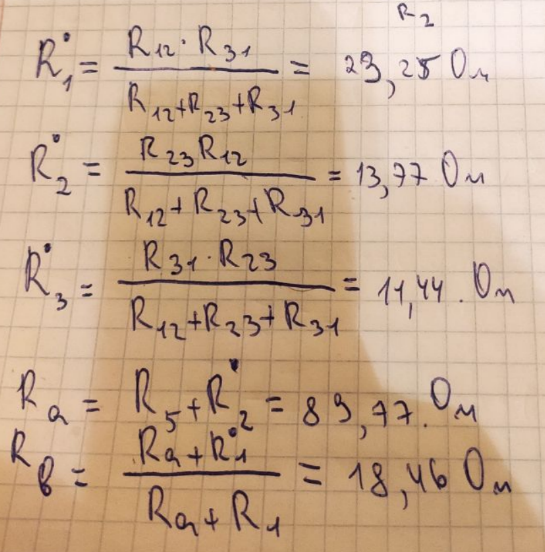 R₂
R₁˙ = R₁₂ · R₃₁ / R₁₂+R₂₃+R₃₁ = 23,25 Ом
R₂˙ = R₂₃ R₁₂ / R₁₂+R₂₃+R₃₁ = 13,77 Ом
R₃˙ = R₃₁ · R₂₃ / R₁₂+R₂₃+R₃₁ = 11,44 . Ом
Rа = R₅ + R₂˙ = 89,77. Ом
Rв = Rа + R₁˙ / Rа + R₁ = 18,46 Ом